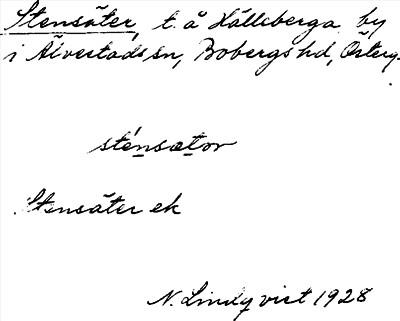 Stensäter, t. å Hälleberga by
i Älvestads sn, Bobergs hd, Österg.
sténsætor
Stensäter ek
N. Lindqvist 1928